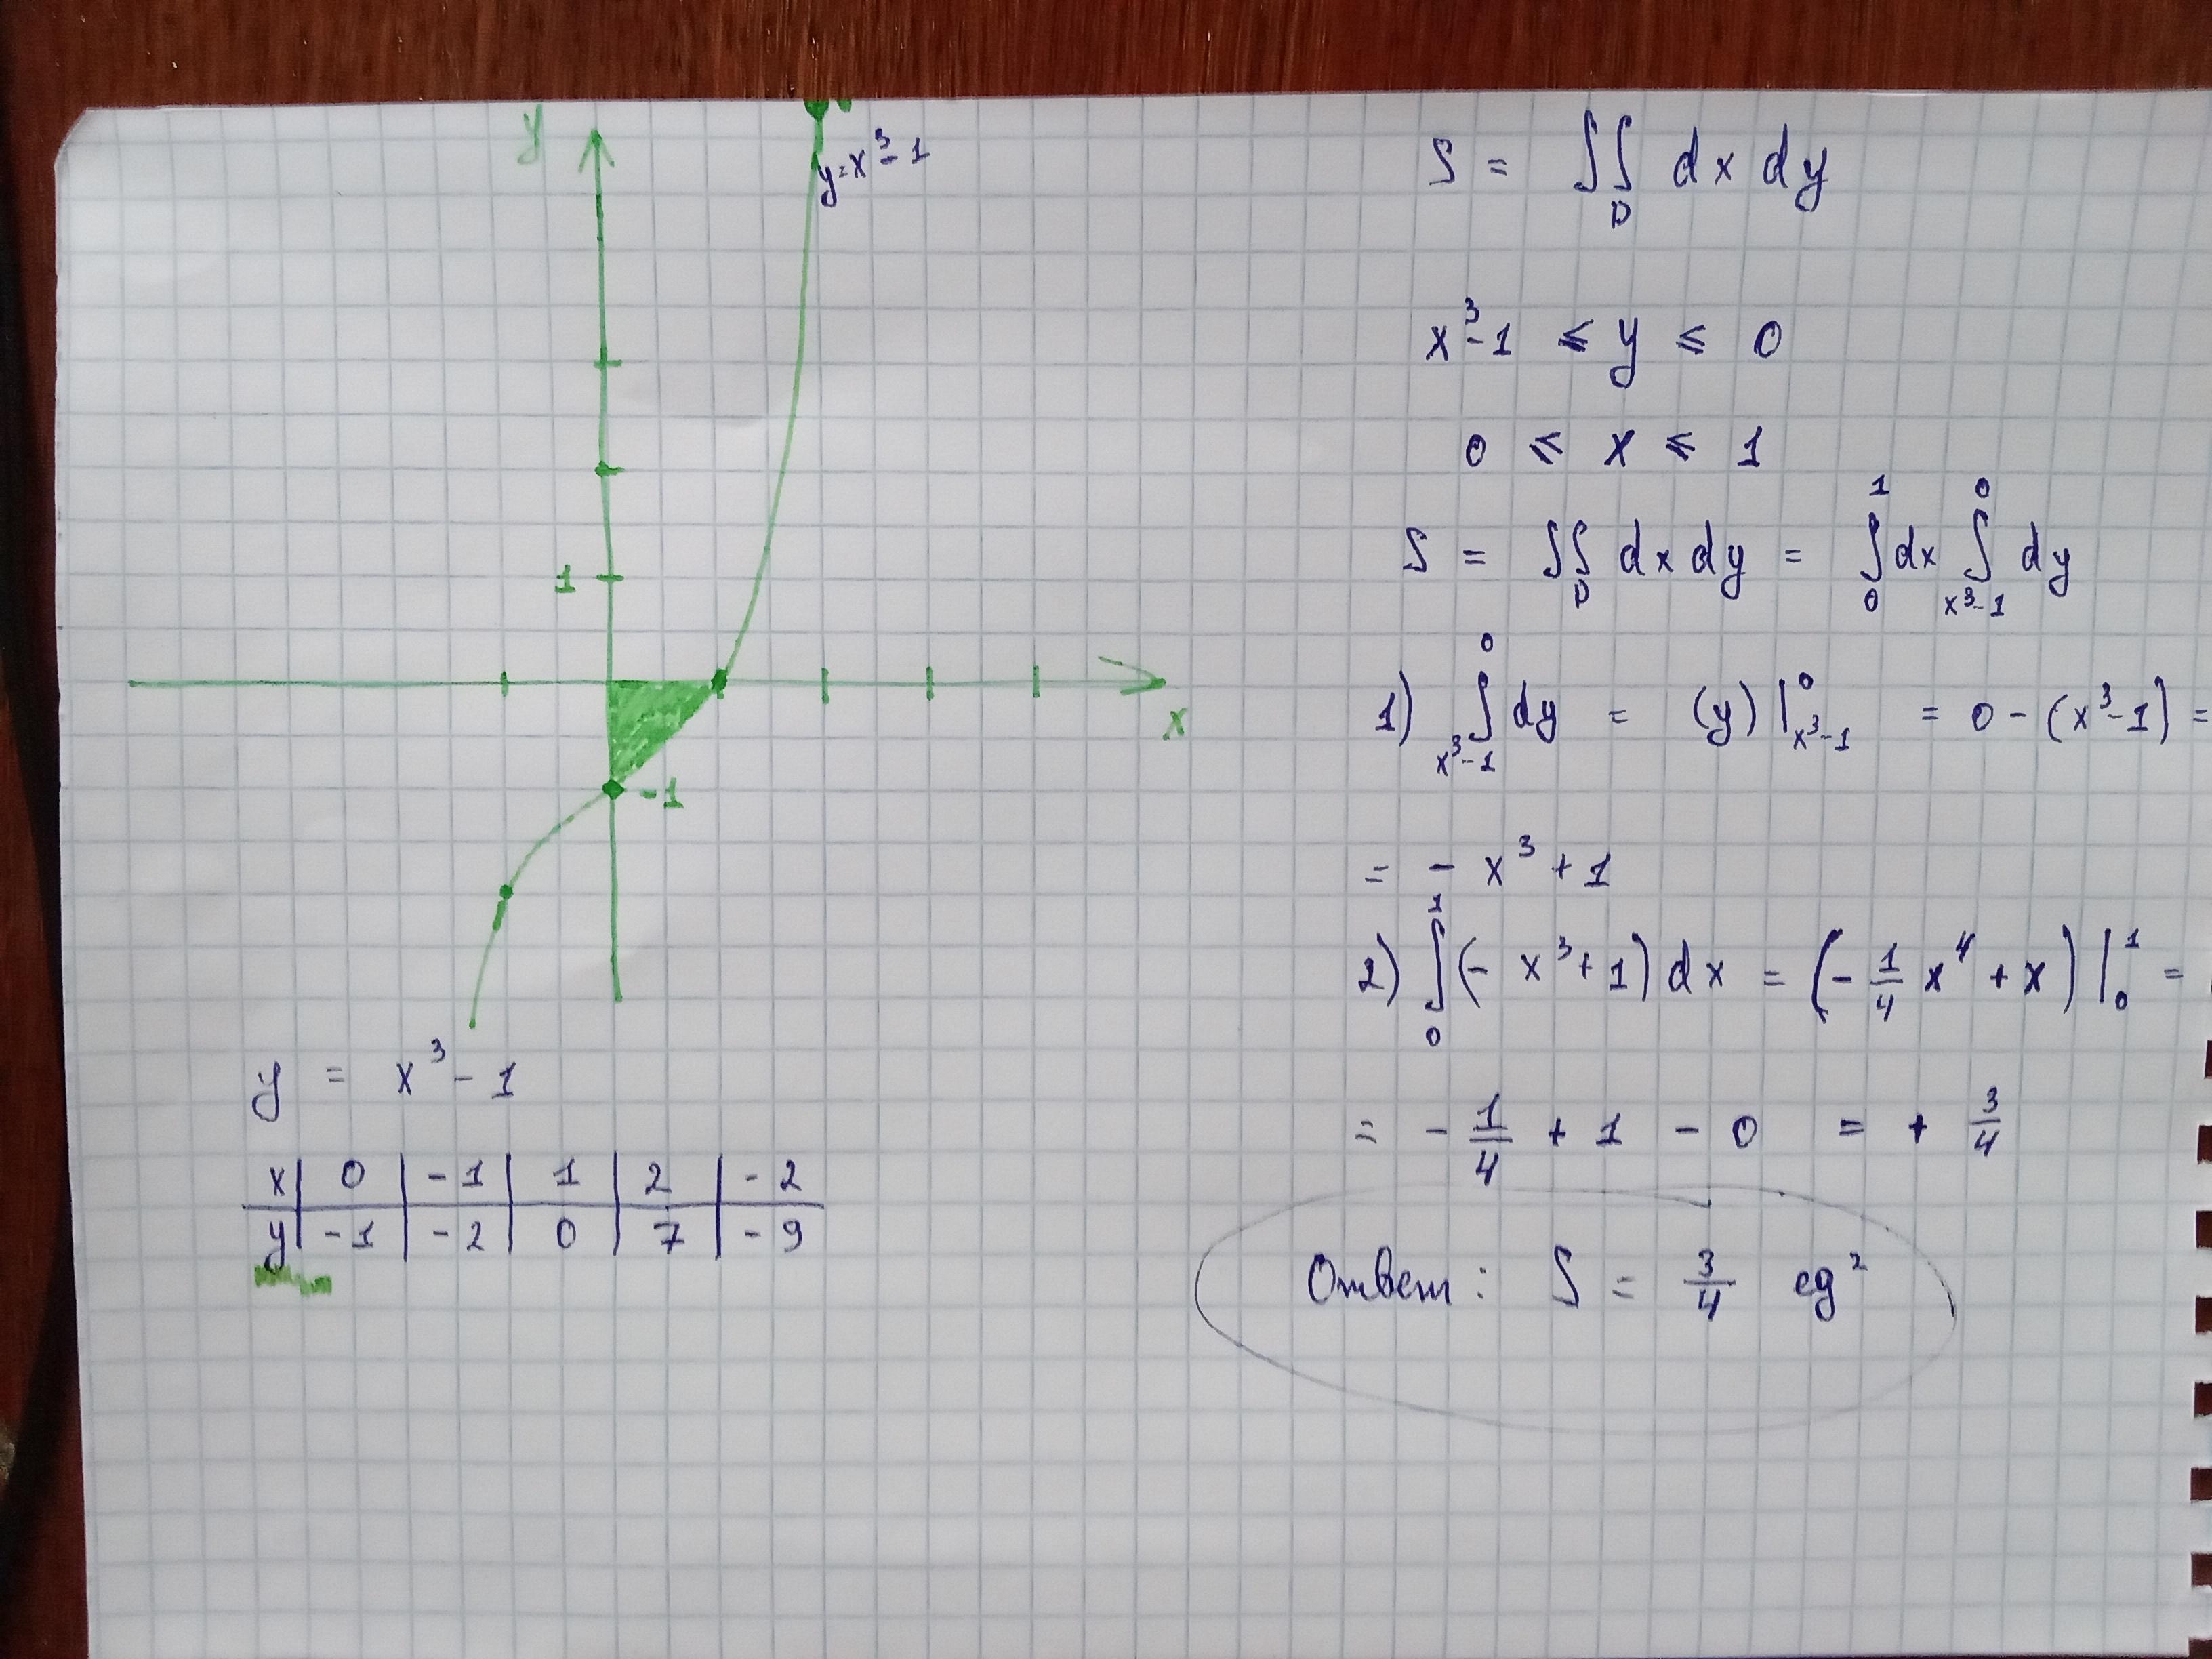 y
y=x³-1
1
x
-1
y = x³ - 1
x | 0 | -1 | 1 | 2 | -2
y | -1 | -2 | 0 | 7 | -9
S = ∬_D dx dy
x³-1 ≤ y ≤ 0
0 ≤ x ≤ 1
S = ∬_D dx dy = ∫_0^1 dx ∫_{x³-1}^0 dy
1) ∫_{x³-1}^0 dy = (y)|_{x³-1}^0 = 0 - (x³-1) =
= - x³ + 1
2) ∫_0^1 (- x³ + 1) dx = (- 1/4 x⁴ + x)|_0^1 =
= - 1/4 + 1 - 0 = + 3/4
Ответ: S = 3/4 ед²